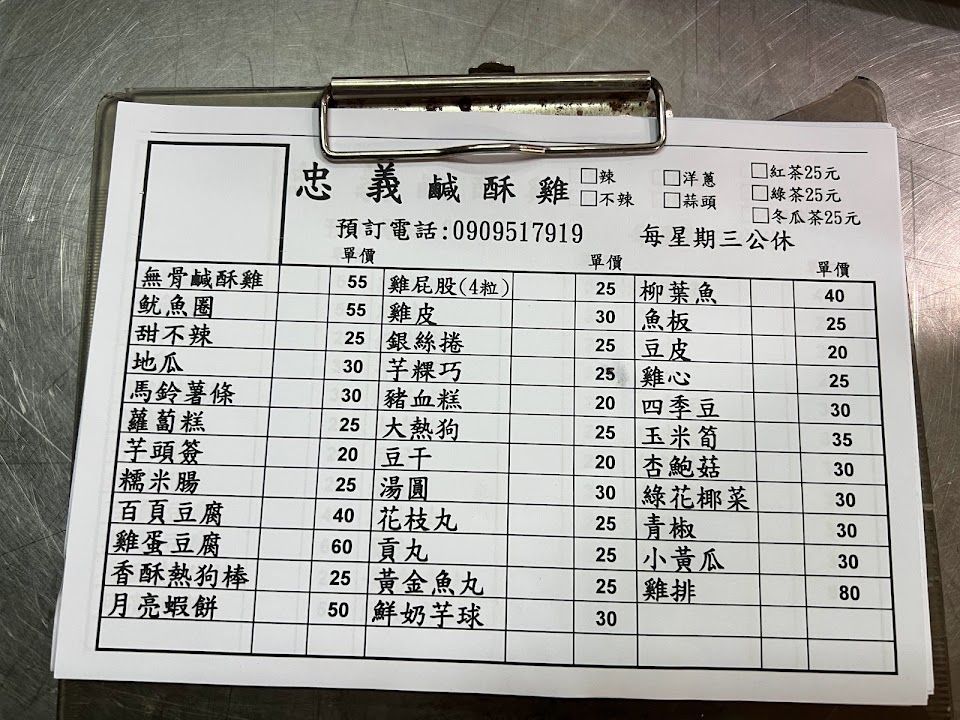 忠義鹹酥雞
□辣 □洋蔥 □紅茶25元
□不辣 □蒜頭 □綠茶25元
□冬瓜茶25元
預訂電話:0909517919 每星期三公休
單價 單價 單價
無骨鹹酥雞 55 雞屁股(4粒) 25 柳葉魚 40
魷魚圈 55 雞皮 30 魚板 25
甜不辣 25 銀絲捲 25 豆皮 20
地瓜 30 芋粿巧 25 雞心 25
馬鈴薯條 30 豬血糕 20 四季豆 30
蘿蔔糕 25 大熱狗 25 玉米筍 35
芋頭簽 20 豆干 20 杏鮑菇 30
糯米腸 25 湯圓 30 綠花椰菜 30
百頁豆腐 40 花枝丸 25 青椒 30
雞蛋豆腐 60 貢丸 25 小黃瓜 30
香酥熱狗棒 25 黃金魚丸 25 雞排 80
月亮蝦餅 50 鮮奶芋球 30